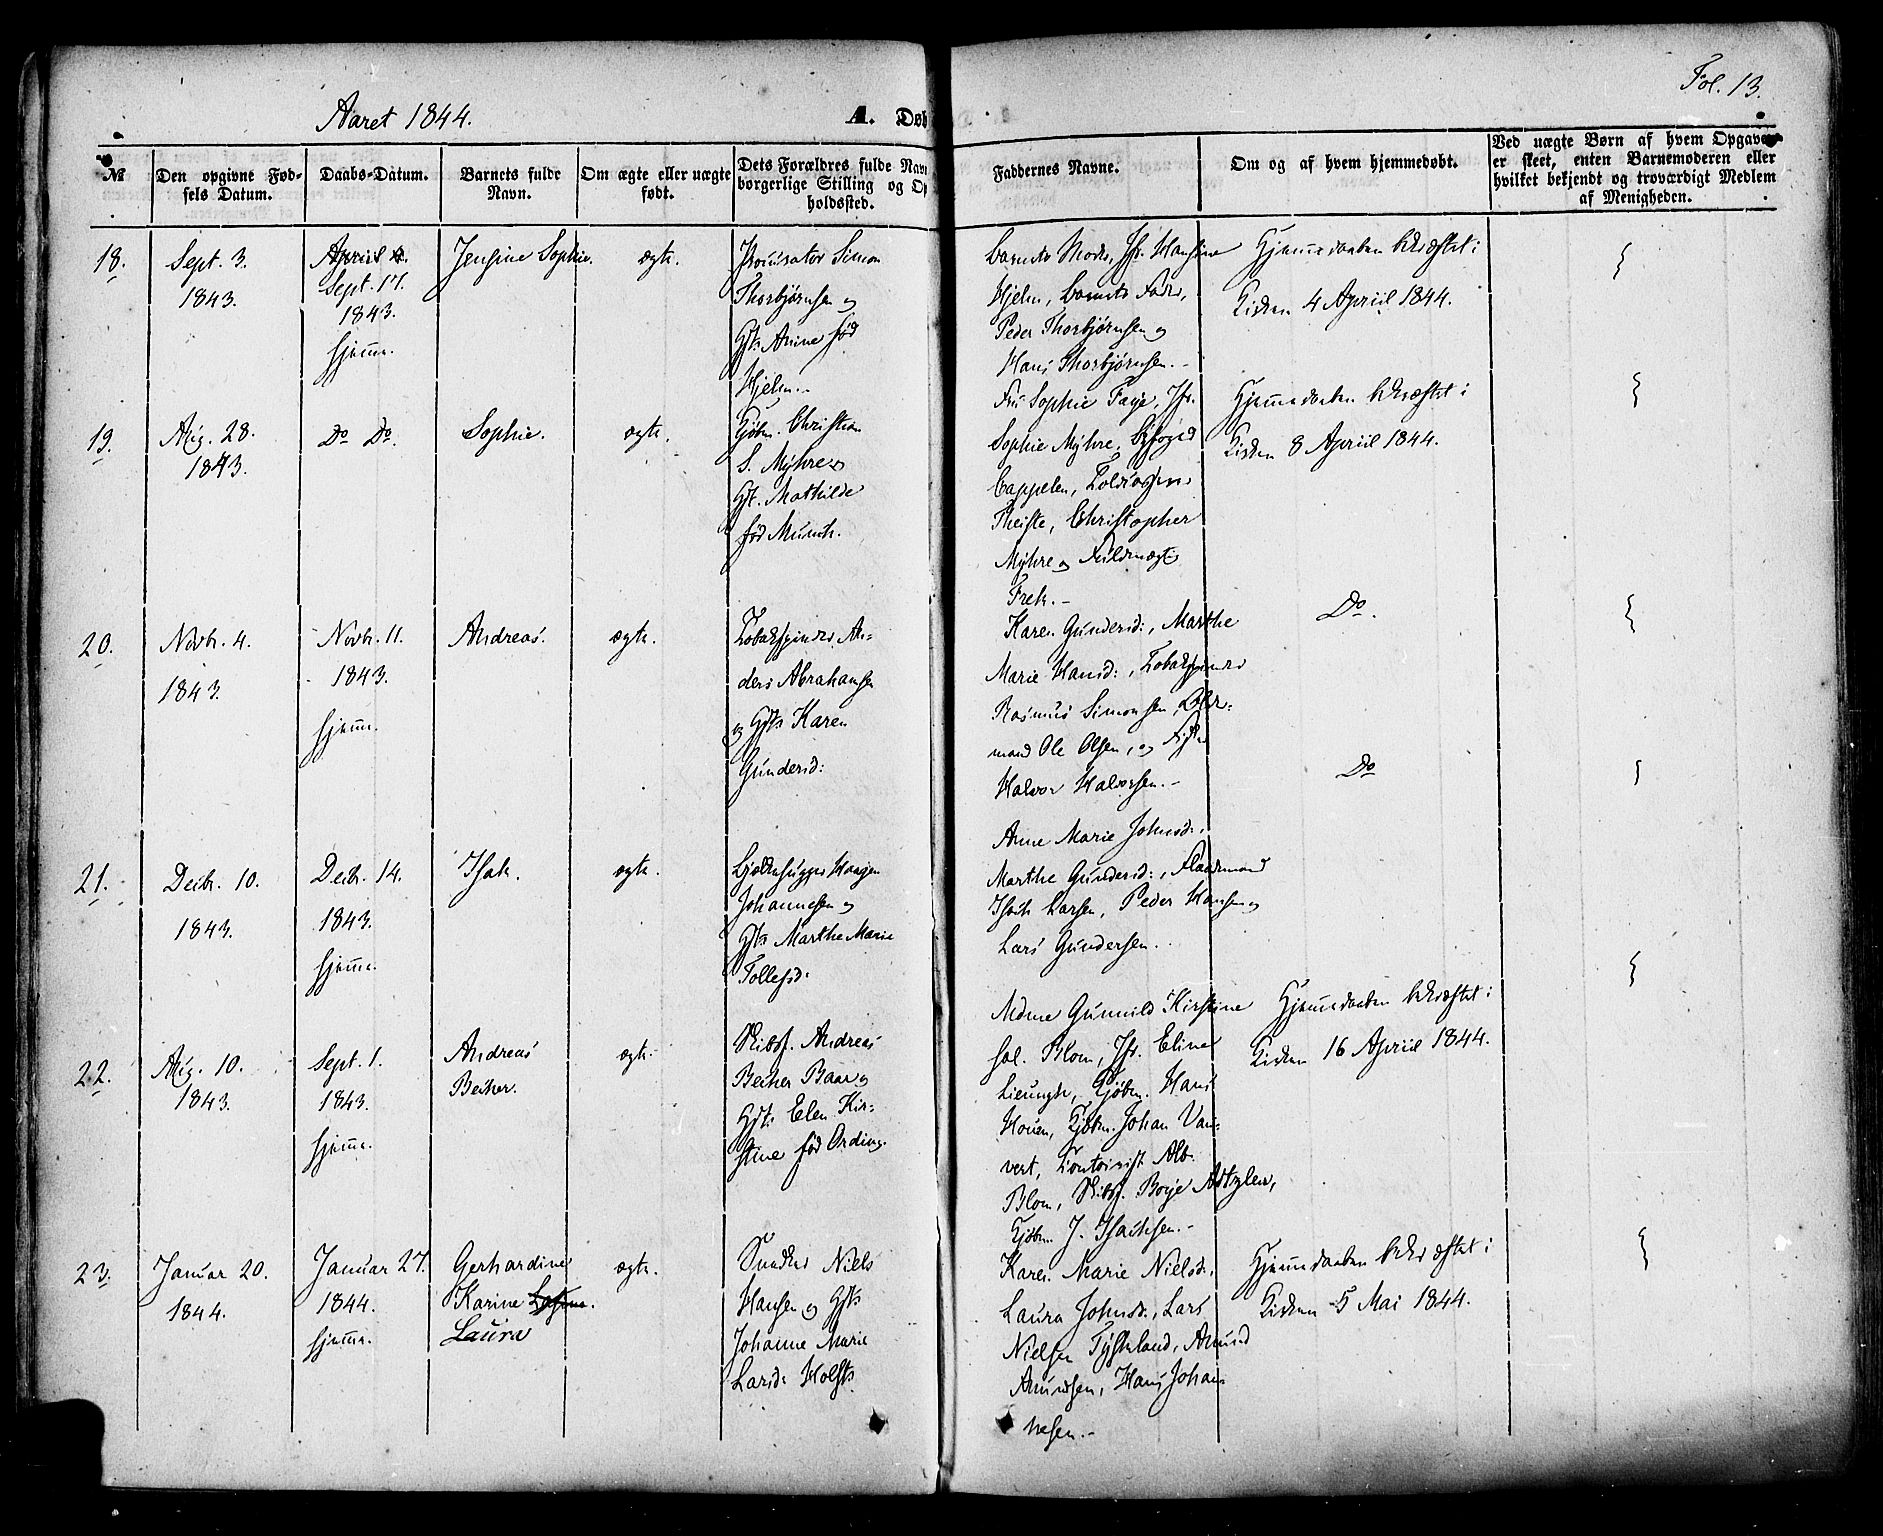 Fol. 13.
Aaret 1844.
A. Døb
№
Den opgivne Fød-
sels Datum.
Daabs-Datum.
Barnets fulde
Navn.
Om ægte eller uægte
født.
Dets Forældres fulde Navn
borgerlige Stilling og Op
holdssted.
Faddernes Navne.
Om og af hvem hjemmedøbt.
Ved uægte Børn af hvem Opgaven
er skeet, enten Barnemoderen eller
hvilket bekjendt og troværdigt Medlem
af Menigheden.
18.
Sept. 3.
1843.
April 4.
Sept. 17.
1843.
hjemme.
Jensine Sophie.
ægte.
Simon
Thorbjørnsen og
Gjts Anine fød
Hjelm.
Barnets Moder, Jfr. Hansine
Hjelm, Barnets Fader,
Peder Thorbjørnsen og
Hans Thorbjørnsen.-
Hjemmedaaben bekræftet i
Kirken 4 Apriil 1844.
19.
Aug. 28.
1843.
Do Do.
Sophie.
ægte.
Kjøbm. Christian
S. Myhre og
Gjt. Mathilde
fød Munch.
Fru Sophie Faye, Jfr.
Sophie Myhre, Byfoged
Cappelen,
Theiste, Christopher
Myhre og Fuldmægtig
Frek.-
Hjemmedaaben bekræftet i
Kirken 8 Apriil 1844.
20.
Novbr. 4.
1843.
Novbr. 11.
1843.
hjemme.
Andreas.
ægte.
Tobakspinder An-
ders Abrahamsen
og Gjts Karen
Gundersd:
Karen Gundersd:, Marthe
Marie Hansd:, Tobakspinder
Rasmus Simonsen,
mand Ole Olsen, og
Halvor Halvorsen.-
Do.
21.
Decbr. 10.
1843.
Decbr. 14.
1843.
hjemme.
Isak.
ægte.
Haagen
Johannesen og
Gjts Marthe Marie
Tollefsd:
Anne Marie Johnsd:,
Marthe Gundersd:,
Isach Larsen, Peder Hansen og
Lars Gundersen.
Do
22.
Aug. 10.
1843.
Sept. 1.
1843.
hjemme.
Andreas
Becker.
ægte.
Skibsf. Andreas
Becker Baar og
Gjts Elen Kir-
stine fød Ording.
Mdme Gunnild Kirstine
sal. Blom, Jfr. Eline
Kjøbm. Hans
Houen, Kjøbm. Johan
vert, Contoirist Alb.
Blom, Skibsf. Borje
Kjøbm. J. Isachsen.-
Hjemmedaaben bekræftet i
Kirken 16 Apriil 1844.
23.
Januar 20.
1844.
Januar 27.
1844.
hjemme.
Gerhardine
Karine
Laura
ægte.
Snedker Niels
Hansen og Gjts
Johanne Marie
Larsd: Holst.
Karen Marie Nielsd:,
Laura Johnsd:, Lars
Nielsen Tysteland, Amund
Amundsen, Hans Johan-
nesen.-
Hjemmedaaben bekræftet i
Kirken 5 Mai 1844.